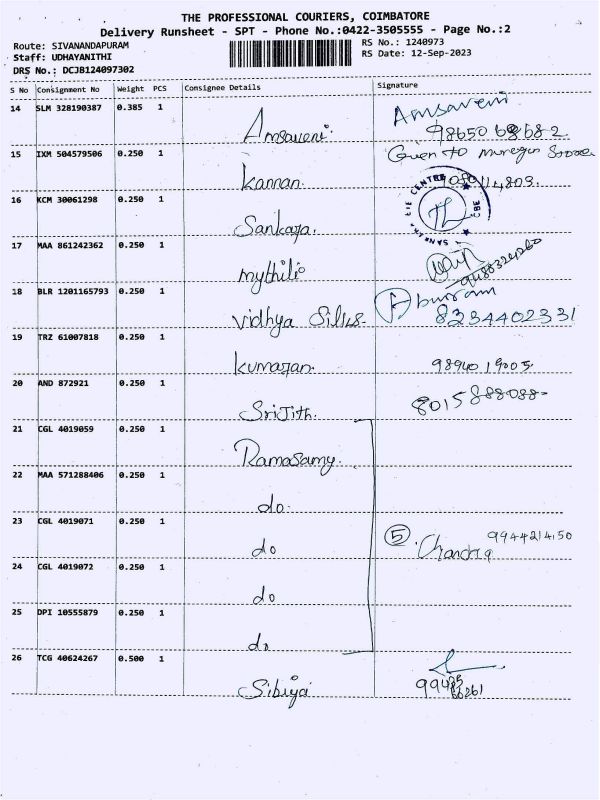 THE PROFESSIONAL COURIERS, COIMBATORE
Delivery Runsheet - SPT - Phone No.:0422-3505555 - Page No.:2
Route: SIVANANDAPURAM
RS No.: 1240973
Staff: UDHAYANITHI
RS Date: 12-Sep-2023
DRS No.: DCJB124097302
S No Consignment No Weight PCS Consignee Details Signature
14 SLM 328190387 0.385 1 Amsaveni Amsaveni
98650 68682
15 IXM 504579506 0.250 1 Kannan Given to Murugan Store
16 KCM 30061298 0.250 1 Sankara
17 MAA 861242362 0.250 1 mythili
18 BLR 1201165793 0.250 1 Vidhya Silks
8234402331
19 TRZ 61007818 0.250 1 Kumaran 9894019005
20 AND 872921 0.250 1 Srijith 8015888088
21 CGL 4019059 0.250 1 Ramasamy
22 MAA 571288406 0.250 1 do
23 CGL 4019071 0.250 1 do 5 Chandra 9944214150
24 CGL 4019072 0.250 1 do
25 DPI 10555879 0.250 1 do
26 TCG 40624267 0.500 1 Sibiya